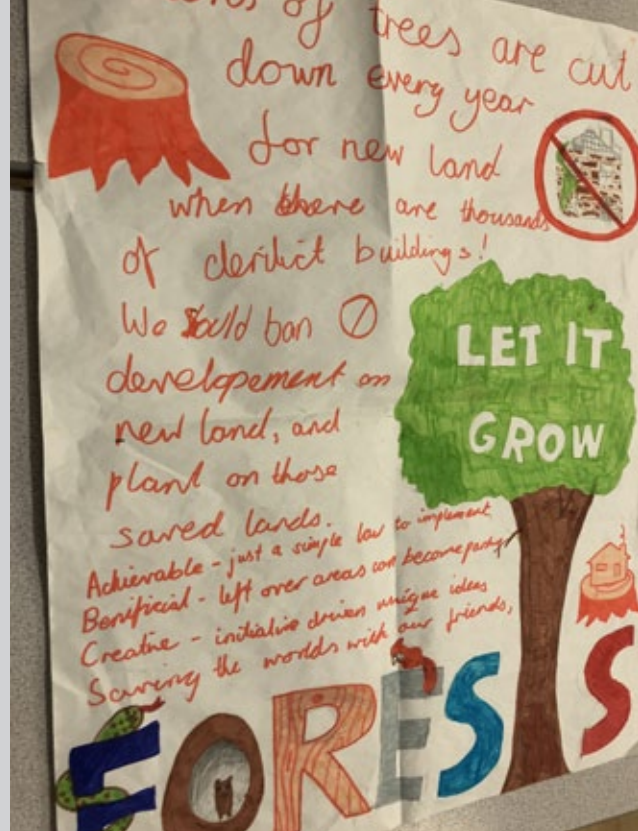 of trees are cut
down every year
for new land
when there are thousands
of derilict buildings!
We sould ban
developement on
new land, and
plant on those
saved lands.
Achievable - just a simple law to implement
Benificial - left over areas can become
Creative - initiative driven unique ideas
Saving the worlds with our friends,
LET IT
GROW
FORESTS